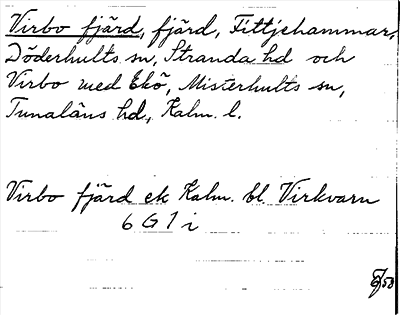 Virbo fjärd, fjärd, Fittjehammar,
Döderhults sn, Stranda hd och
Virbo med Ekö, Misterhults sn,
Tunaläns hd, Kalm. l.
Virbo fjärd ek Kalm. bl Virkvarn
6 G 1 i